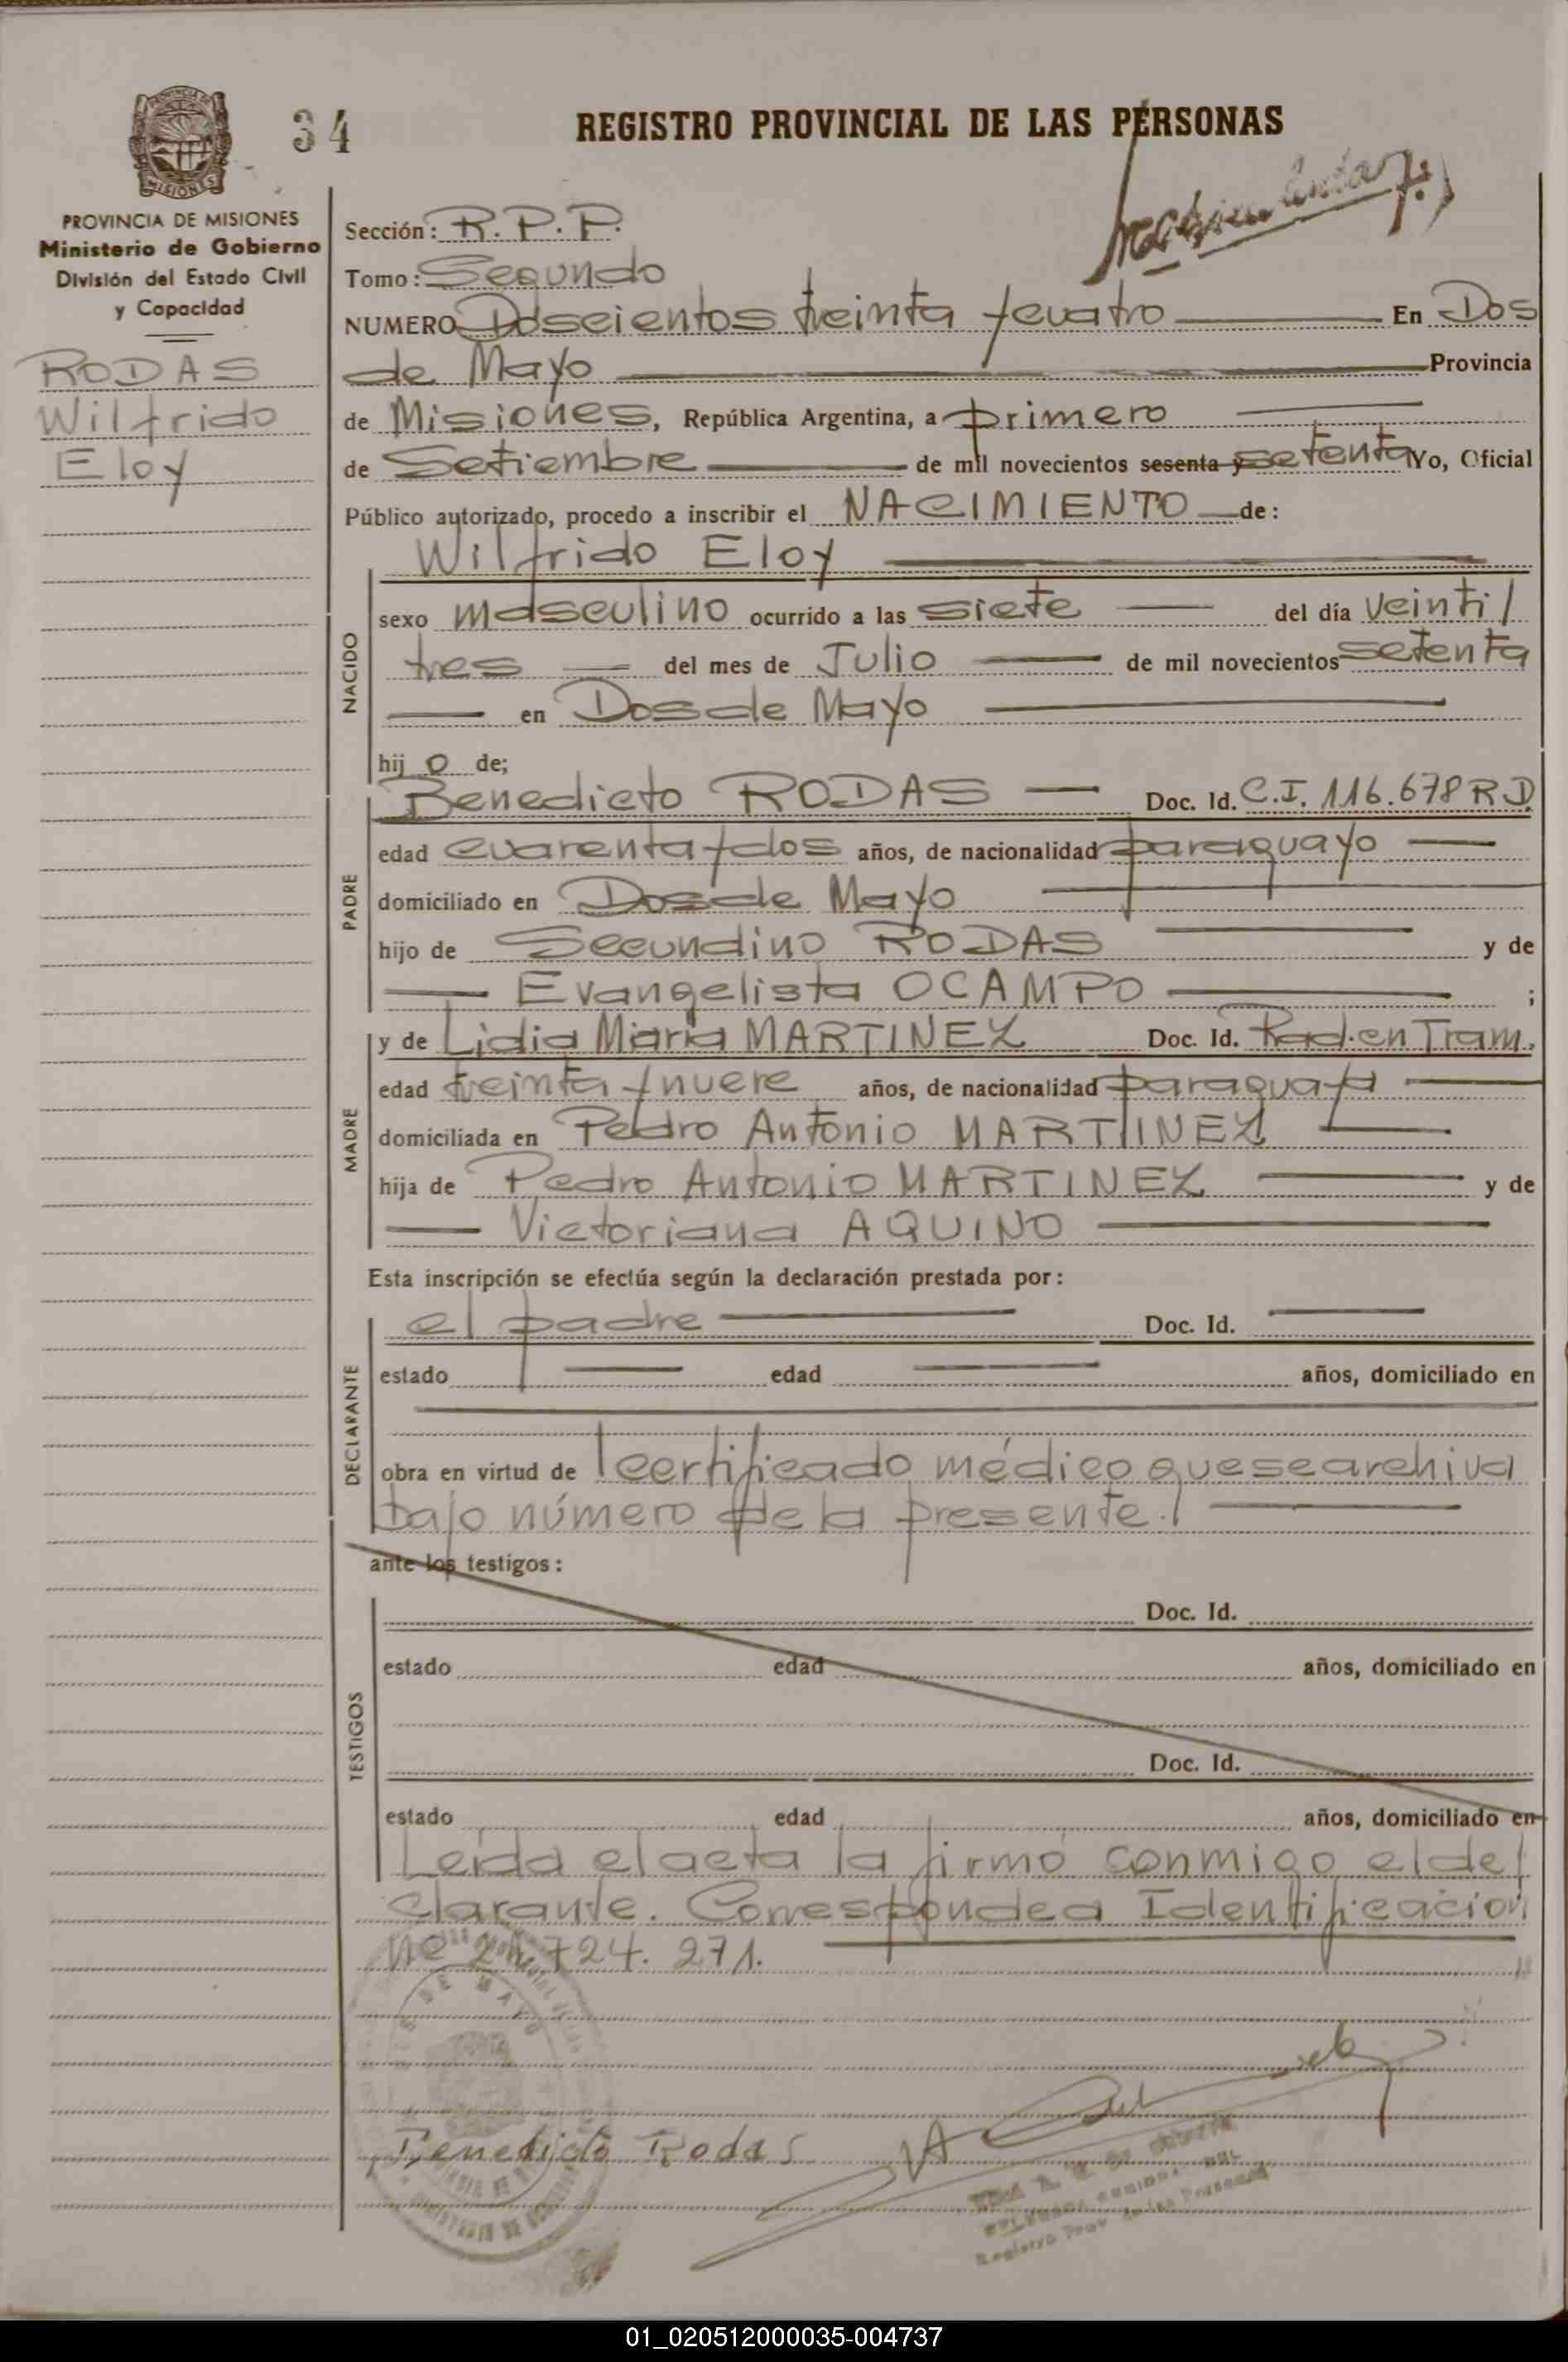 34
REGISTRO PROVINCIAL DE LAS PERSONAS
PROVINCIA DE MISIONES
Ministerio de Gobierno
División del Estado Civil
y Capacidad
RODAS
Wilfrido
Eloy
Sección: R. P. P.
Tomo: Segundo
NUMERO Doscientos treinta y cuatro En Dos
de Mayo Provincia
de Misiones, República Argentina, a primero
de Setiembre de mil novecientos sesenta y setenta Yo, Oficial
Público autorizado, procedo a inscribir el NACIMIENTO de:
Wilfrido Eloy
NACIDO
sexo masculino ocurrido a las siete del día veinti/
tres del mes de Julio de mil novecientos setenta
en Dos de Mayo
hij o de;
PADRE
Benedicto RODAS Doc. Id. C.I. 116.678 R D
edad cuarenta y dos años, de nacionalidad paraguayo
domiciliado en Dos de Mayo
hijo de Secundino RODAS y de
Evangelista OCAMPO ;
MADRE
y de Lidia María MARTINEZ Doc. Id. Rad. en Tram.
edad treinta y nueve años, de nacionalidad paraguaya
domiciliada en Pedro Antonio MARTINEZ
hija de Pedro Antonio MARTINEZ y de
Victoriana AQUINO
Esta inscripción se efectúa según la declaración prestada por:
DECLARANTE
el padre Doc. Id.
estado edad años, domiciliado en
obra en virtud de certificado médico que se archiva
bajo número de la presente./
ante los testigos:
TESTIGOS
Doc. Id.
estado edad años, domiciliado en
Doc. Id.
estado edad años, domiciliado en
Leída el acta la firmó conmigo el de/
clarante. Corresponde a Identificación
724. 271.
Benedicto Rodas
01_020512000035-004737